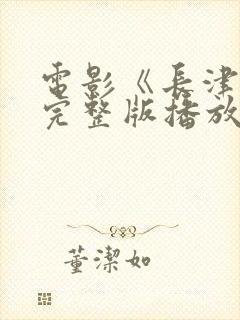 電影《長津
完整版播放
董潔如